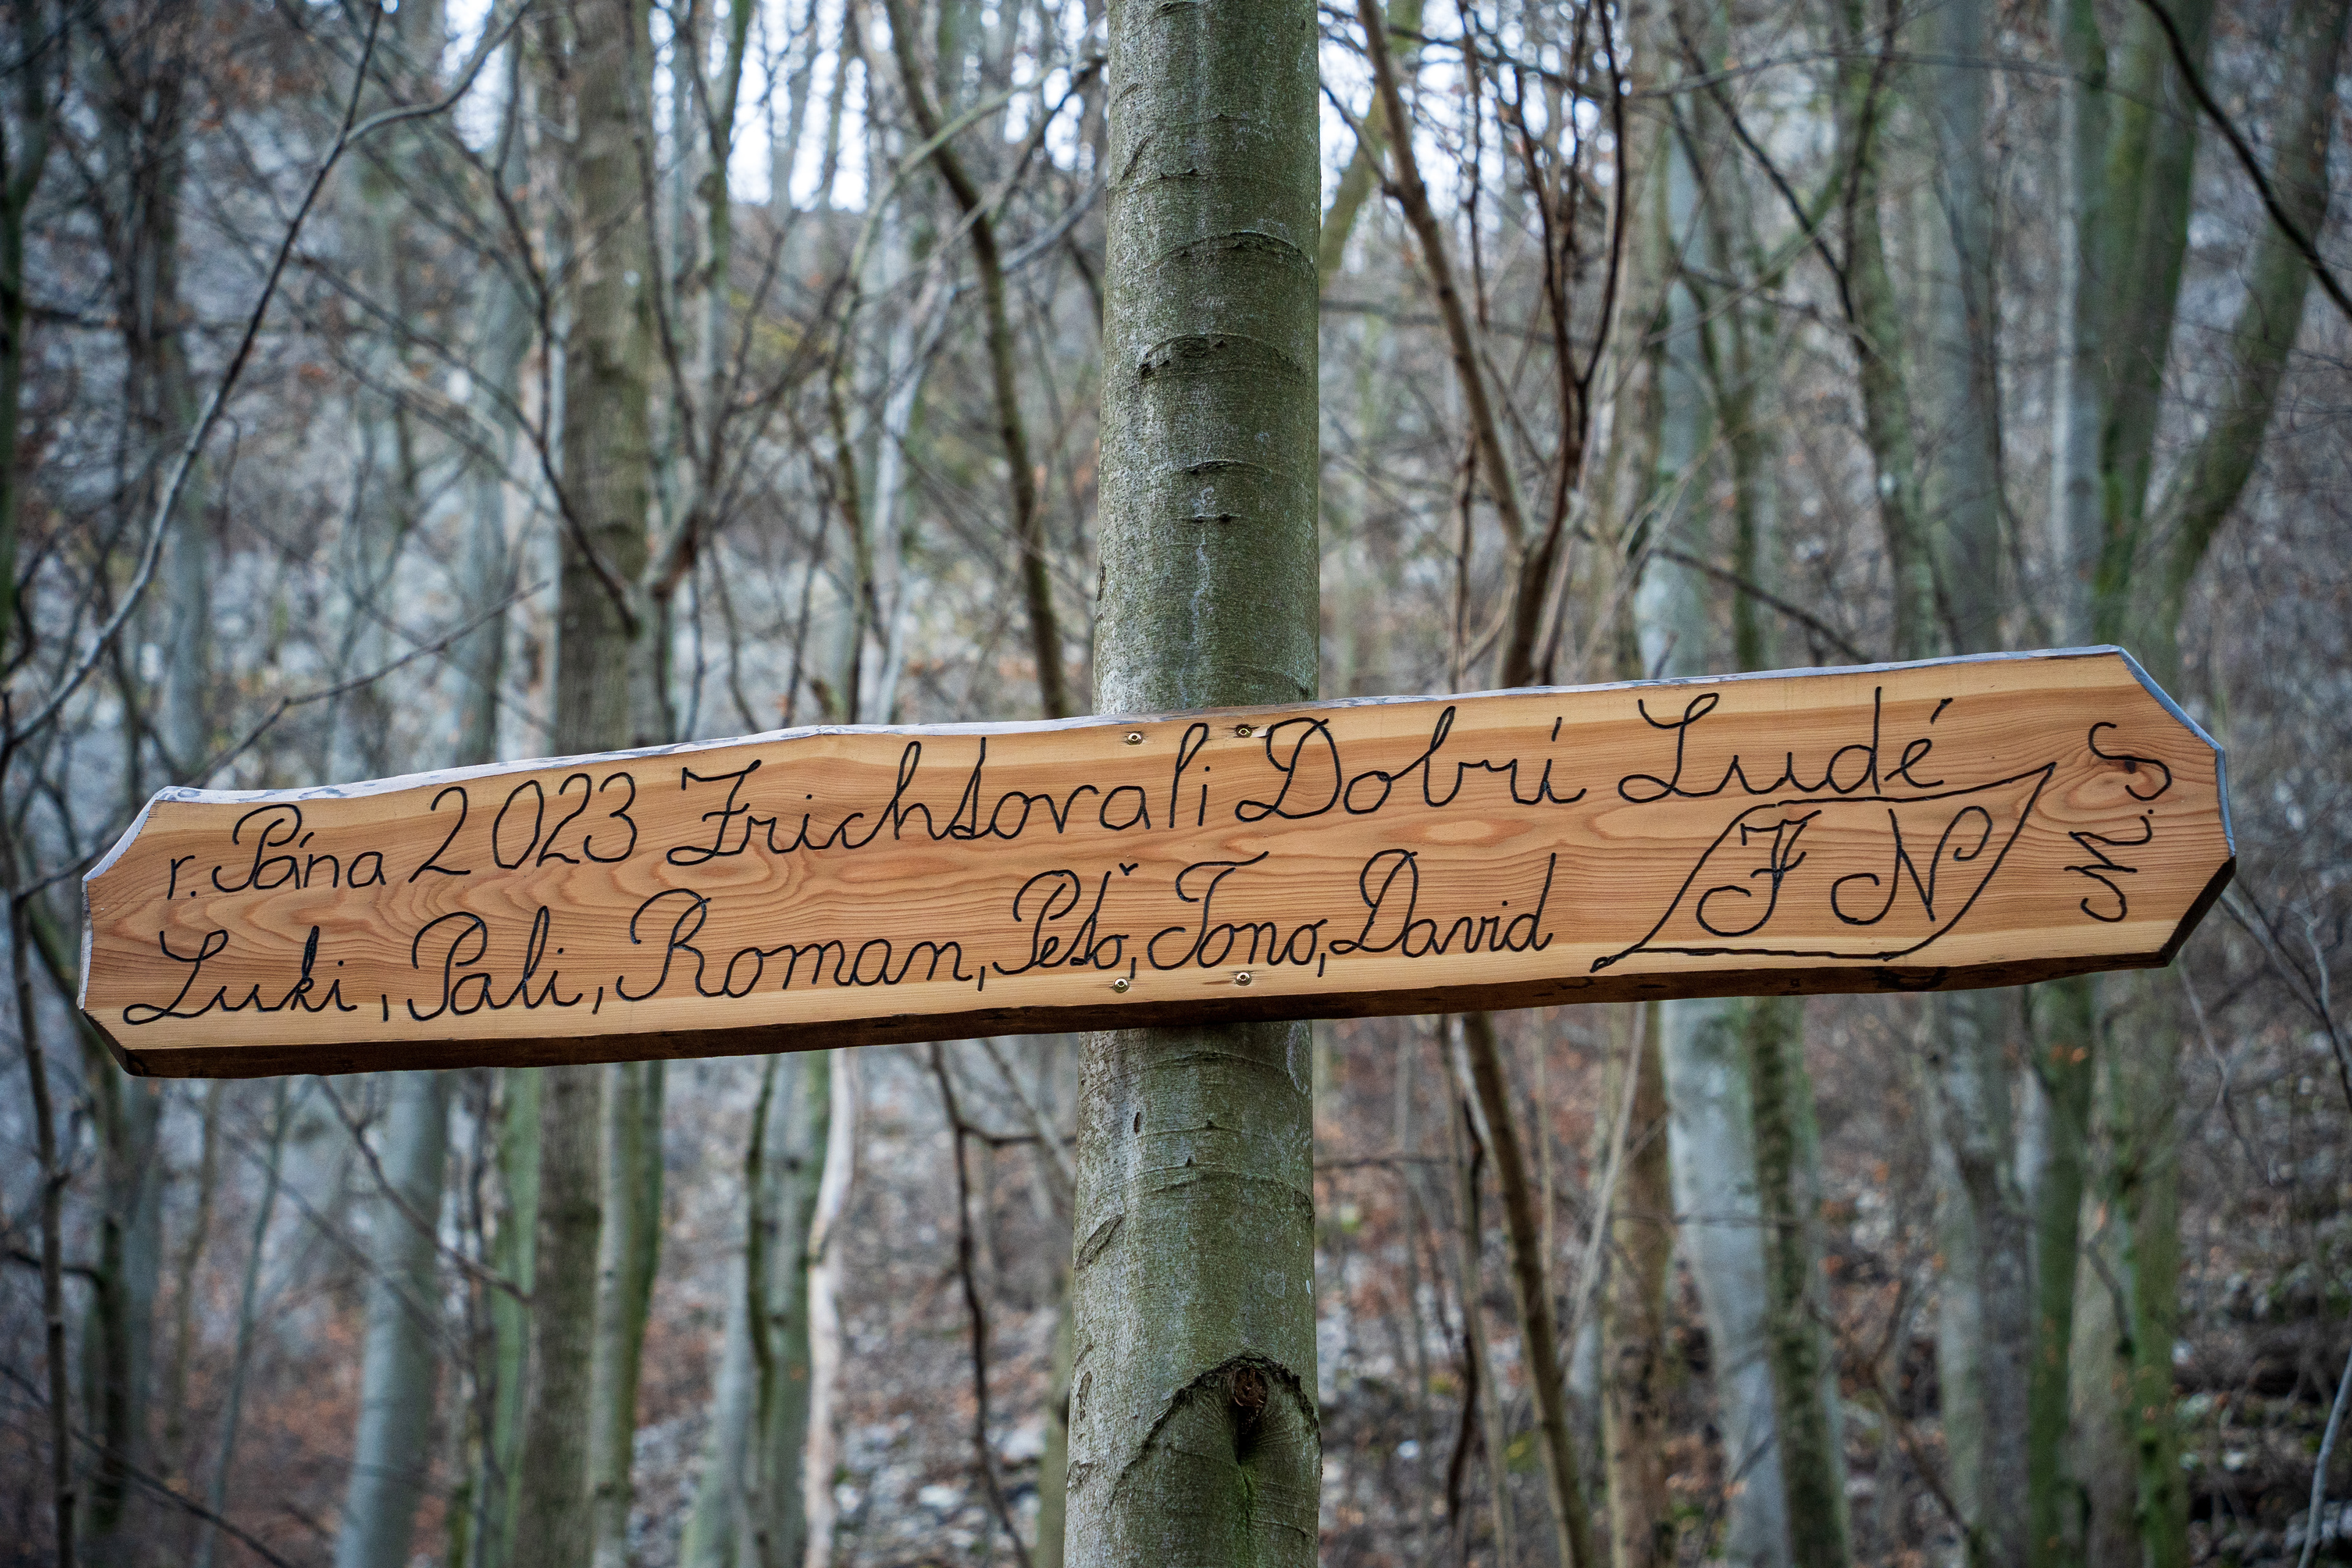 r. Pána 2023 Zrichtovali Dobrí Ludé
Luki, Pali, Roman, Peťo, Tono, David
FN
M.S